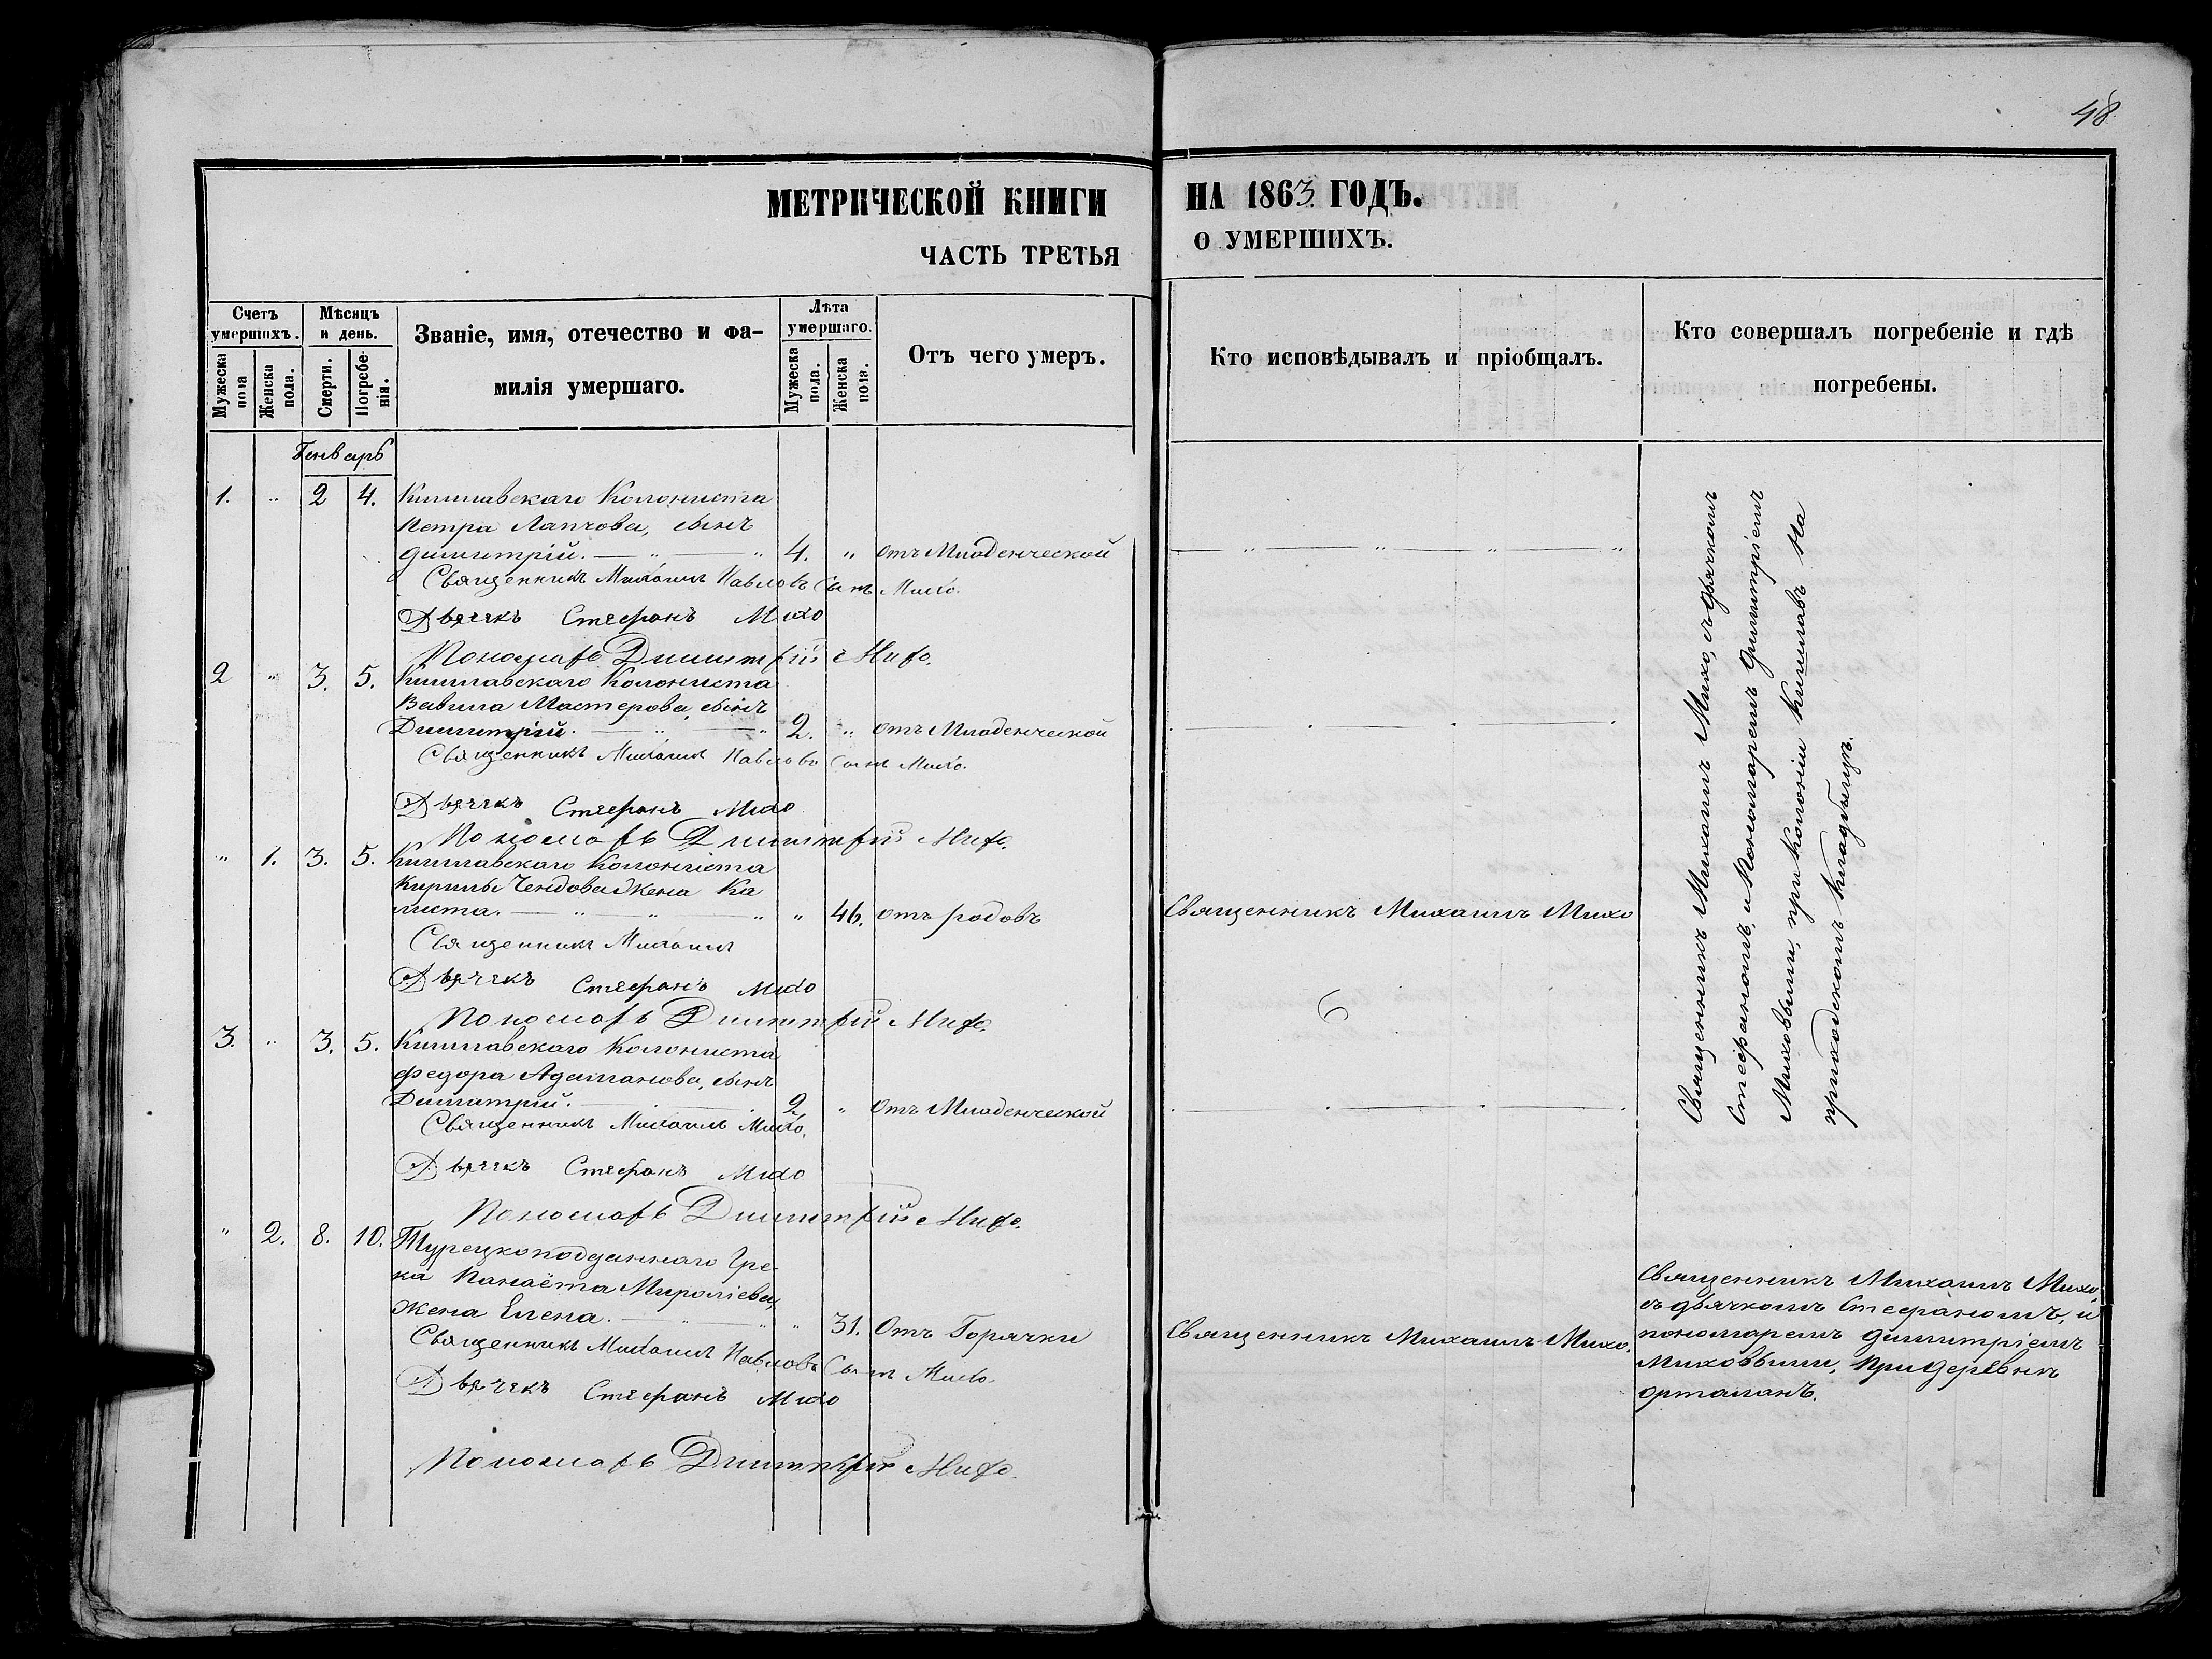 48
МЕТРИЧЕСКОЙ КНИГИ НА 1863 ГОДЪ.
ЧАСТЬ ТРЕТЬЯ О УМЕРШИХЪ.
Счетъ умершихъ.
Мужеска пола
Женска пола.
Мѣсяцъ и день.
Смерти.
Погребенія.
Званіе, имя, отечество и фа-
милія умершаго.
Лѣта умершаго.
Мужеска пола.
Женска пола.
Отъ чего умеръ.
Кто исповѣдывалъ и пріобщалъ.
Кто совершалъ погребеніе и гдѣ
погребены.
Генварь
1. " 2 4. Кишлавскаго Колониста
Петра Лапчова, сынъ
Димитрій. — " — " 4. " отъ Младенческой — " — " — " — "
Священникъ Михаилъ Павловъ Сынъ Михо.
Дьячекъ Стефанъ Михо
Пономарь Димитрій Михо.
2 " 3. 5. Кишлавскаго Колониста
Вавила Мастерова, сынъ
Димитрій. — " — " 2. " отъ Младенческой
Священникъ Михаилъ Павловъ Сынъ Михо.
Дьячекъ Стефанъ Михо
Пономарь Димитрій Михо.
" 1. 3. 5. Кишлавскаго Колониста
Кирилы Чендова Жена Ка
листа. — " — " — " " 46. отъ родовъ Священникъ Михаилъ Михо
Священникъ Михаилъ
Дьячекъ Стефанъ Михо
Пономарь Димитрій Михо.
3. " 3. 5. Кишлавскаго Колониста
Федора Адаманова, сынъ
Димитрій. — 2 " Отъ Младенческой
Священникъ Михаилъ Михо.
Дьячекъ Стефанъ Михо
Пономарь Димитрій Михо.
" 2. 8. 10. Турецкоподданнаго Гре-
ка Панаёта Миролієва,
Жена Елена. — " — " " 31. Отъ Горячки Священникъ Михаилъ Михо.
Священникъ Михаилъ Павловъ Сынъ Михо.
Дьячекъ Стефанъ Михо
Пономарь Димитрій Михо.
Священникъ Михаилъ Михо, съ дьячкомъ
Стефаномъ, и Пономаремъ Димитріемъ
Миховыми, при Колоніи Кишлавъ На
приходскомъ кладбищѣ.
Священникъ Михаилъ Михо,
съ дьячкомъ Стефаномъ, и
пономаремъ Димитріемъ
Миховыми, при деревнѣ
орталанъ.